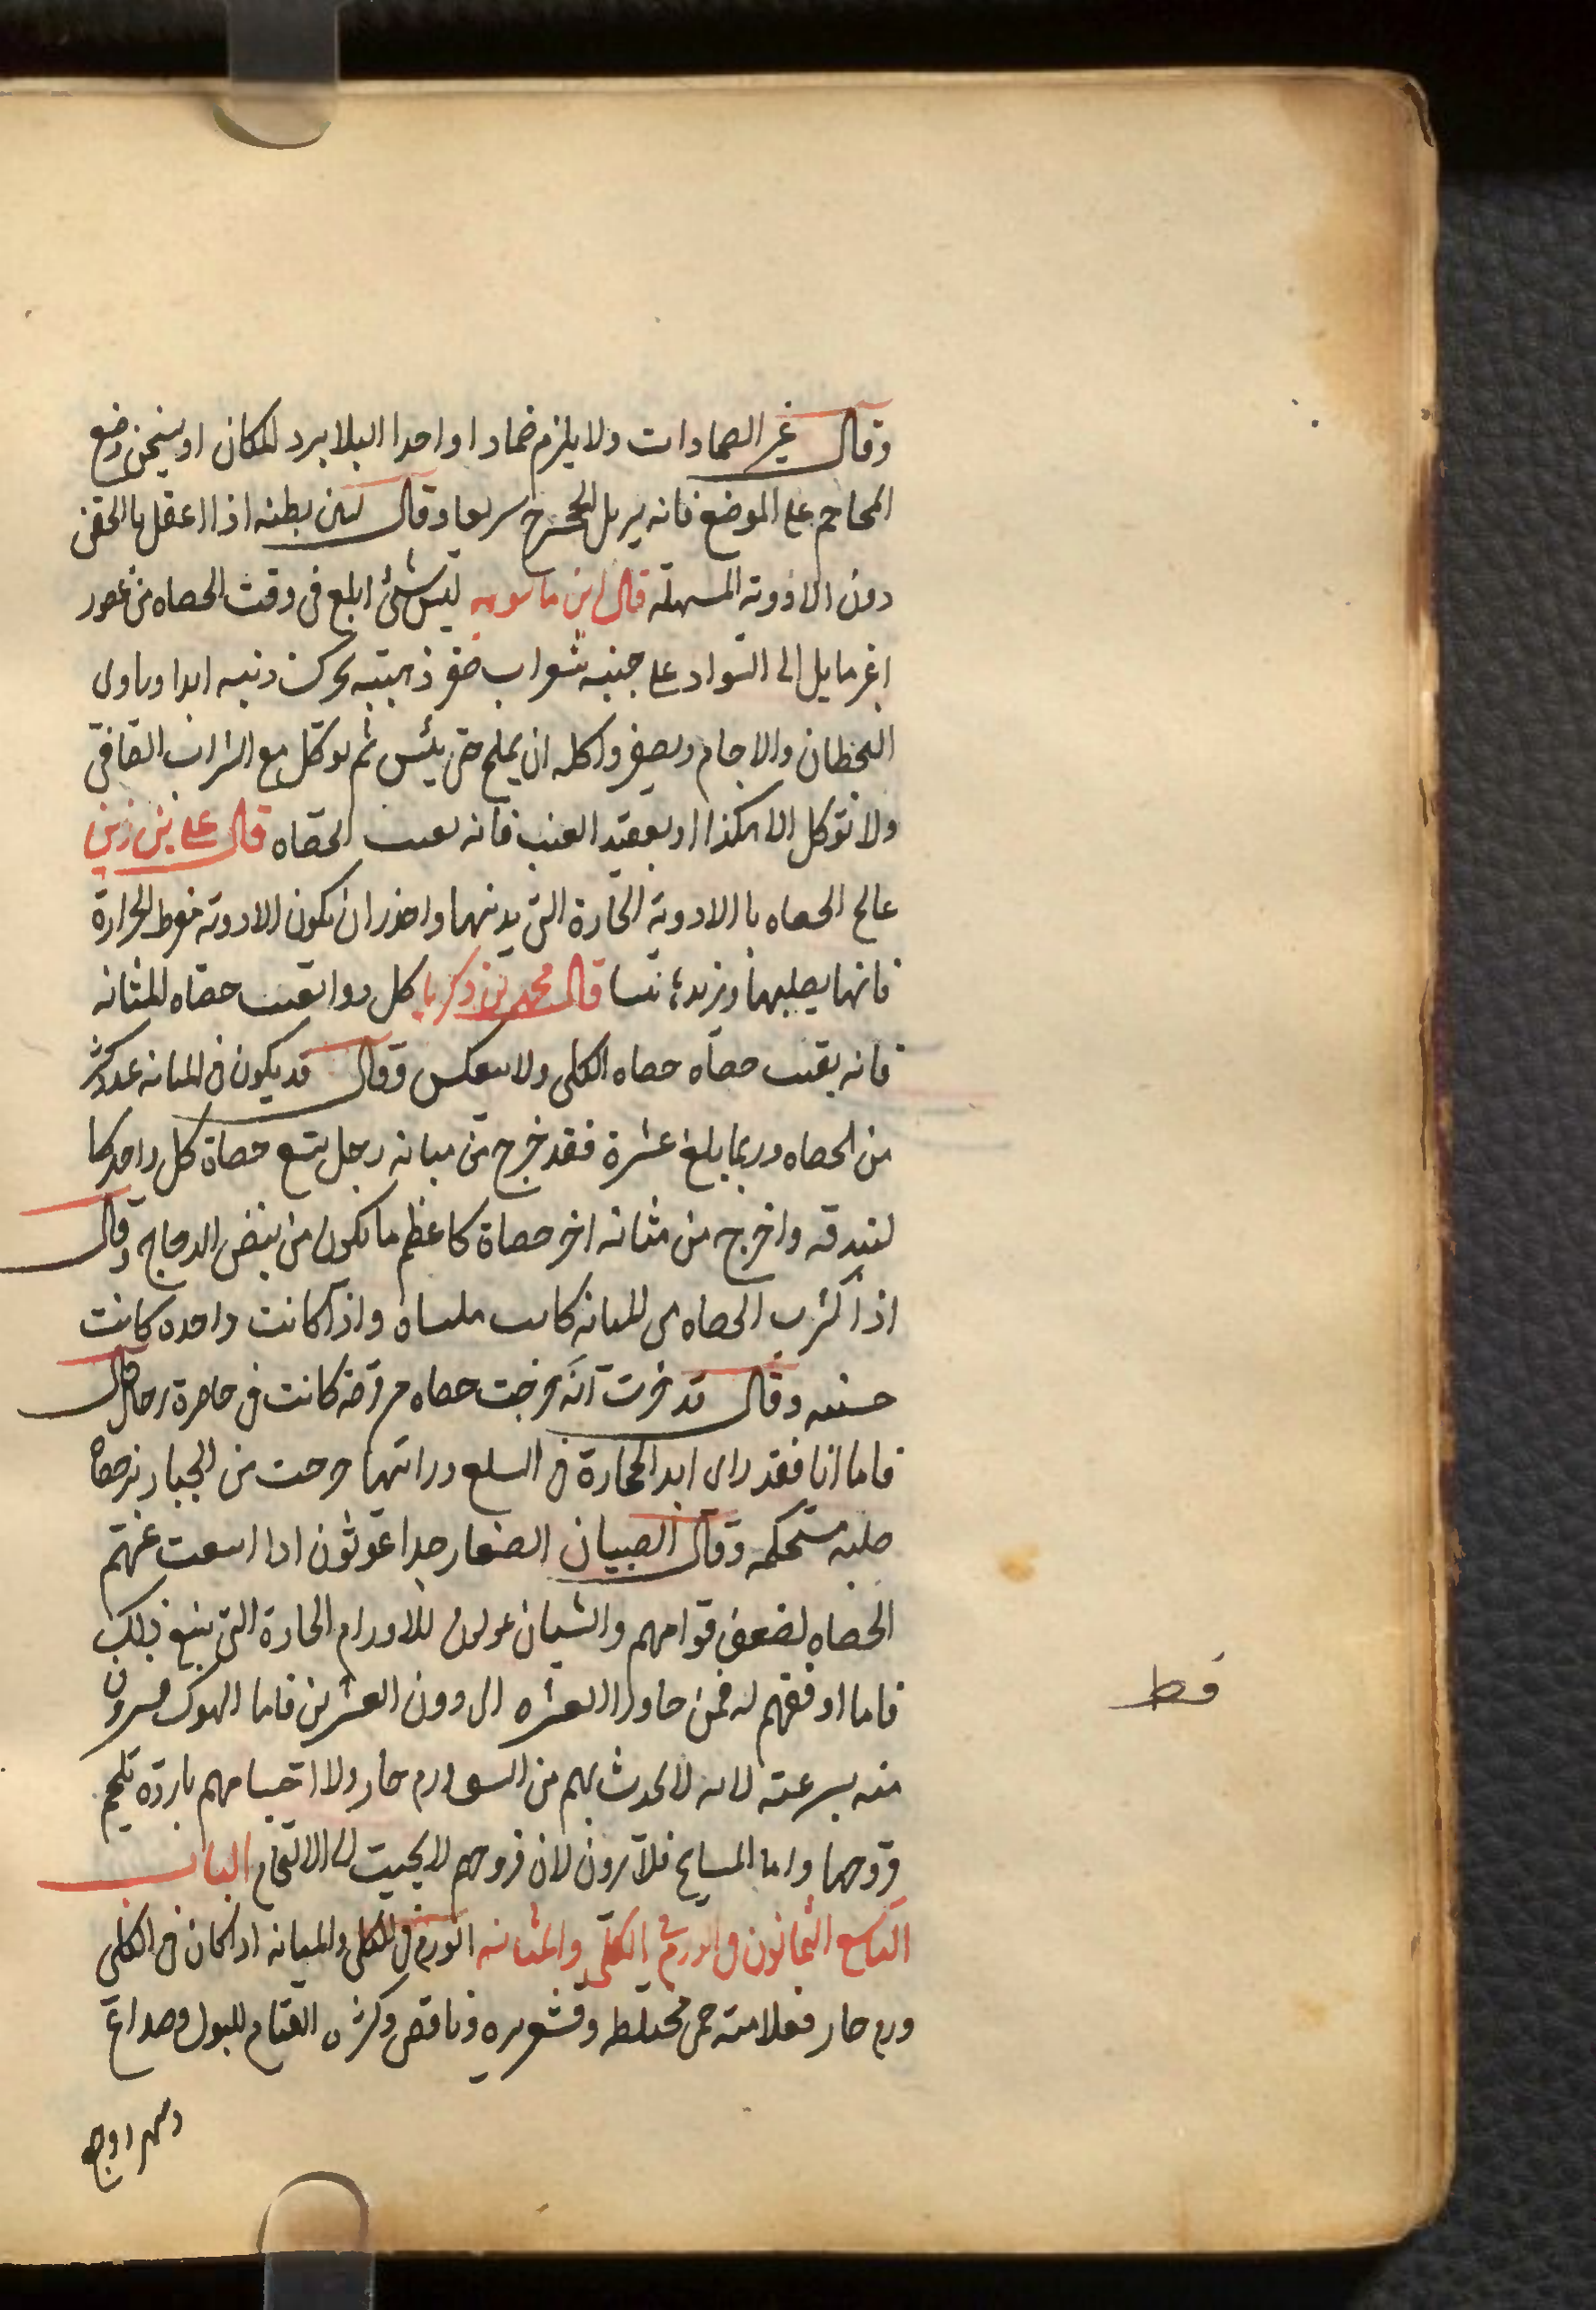 وقال غير الضمادات ولا يلزم ضمادا واحدا البلا يبرد المكان او يسخن وضع
المحاجم على الموضع فانه يزيل الحجر سريعا وقال لين بطنه اذا اعقل بالحقن
دون الادوية المسهلة قال ابن ماسويه ليس شئ ابلغ فى وقت الحصاه من عصفور
اغر مايل الى السواد على جنبيه شواب صفر ذهبيه يحرك ذنبه ابدا وياوى
الحطان والاجام ويصفر واكله ان يملح حتى ييس ثم يوكل مع الشراب الصافى
ولا توكل الا هكذا او بعقيد العنب فانه يفتت الحصاه قال على بن زين
عالج الحصاه باالادوية الحارة التى يدنهما واحذر ان يكون الادوية مفرط الحرارة
فانها يصلبهما ويزيدها يبسا قال محمد بن زكريا كل دوا يفتت حصاه المثانه
فانه يفتت حصاه حصاه الكلى ولا ينعكس وقال قد يكون فى المثانه عدد كثير
من الحصاه وربما بلغ عشرة فقد خرج من مثانه رجل تسع حصاة كل واحد كا
لبندقه واخرج من مثانه اخر حصاة كاعظم ما يكون من بيض الدجاج وقال
اذا كثرت الحصاه فى المثانه كانت ملساه واذا كانت واحده كانت
خشنه وقال قد خبرت انه خرجت حصاه من قرحه كانت فى خاصرة رجل قال
فاما انا فقد راى ابدا الحجارة فى السلع ورايتها خرجت من الجباونر حصاه
صلبه مستحكمه وقال الصبيان الصغار جدا يموتون اذا اسعت عنهم
الحصاه لضعف قوامهم والشبان يموتون للاورام الحارة التى يتبع ذلك
فاما اوفقهم له فمن جاوز العشره الى دون العشرين فاما الهوك فيبرون
منه بسرعته لانه لا يحدث بهم من السق ورم حار ولا اجسامهم بارده تلحم
قروحها واما المسايخ فلا يبرون لان قروحهم لا يجيت الى الالتحام الباب
التاسع الثمانون فى الورم فى الكلى والمثانه الورم فى الكلى والمثانه اذا كان فى الكلى
ورم حار فعلامته حمى مختلطه وقشعريره ونافض وكثره القيام للبول وصداع
قط